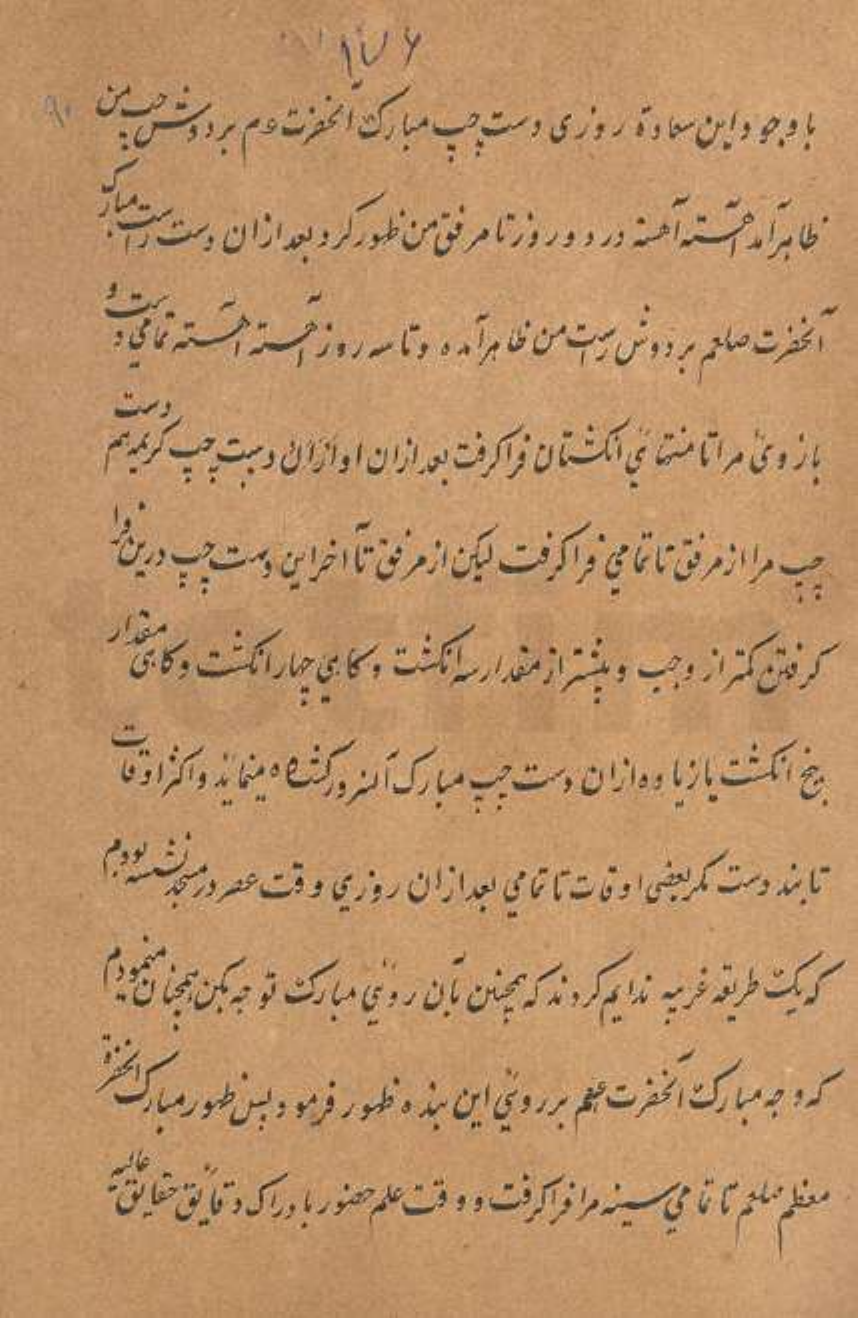 ۱۷۶
۹۰
با وجود این سعادة روزی دست چپ مبارک آنحضرت عم بر دوش چپ من
ظاهر آمد آهسته آهسته در دو روز تا مرفق من ظهور کرد بعد ازان دست راست مبارک
آنحضرت صلعم بر دوش راست من ظاهر آمده و تا سه روز آهسته آهسته تمامی دست و
بازوئ مرا تا منتهائ انکشتان فرا کرفت بعد ازان او ازان دست چپ کریمه هم دست
چپ مرا از مرفق تا تمامی فرا کرفت لیکن از مرفق تا آخر این دست چپ درین فرا
کرفتن کمتر از وجب و بیشتر از مقدار سه انکشت و کاهی چهار انکشت و کاهی مقدار
پنج انکشت یا زیاده ازان دست چپ مبارک آنسرور کشاده مینماید و اکثر اوقات
تا بند دست مکر بعضی اوقات تا تمامی بعد ازان روزی وقت عصر در مسجد نشسته بودم
که یک طریقه غریبه ندایم کردند که همچنین بآن روئ مبارک توجه بکن همچنان مینمودم
که وجه مبارک آنحضرت صلعم بر روئ این بنده ظهور فرمود پس ظهور مبارک آنحضرة
معظم صلعم تا تمامی سینه مرا فرا کرفت و وقت علم حضور با دراک دقایق حقایق عالیه